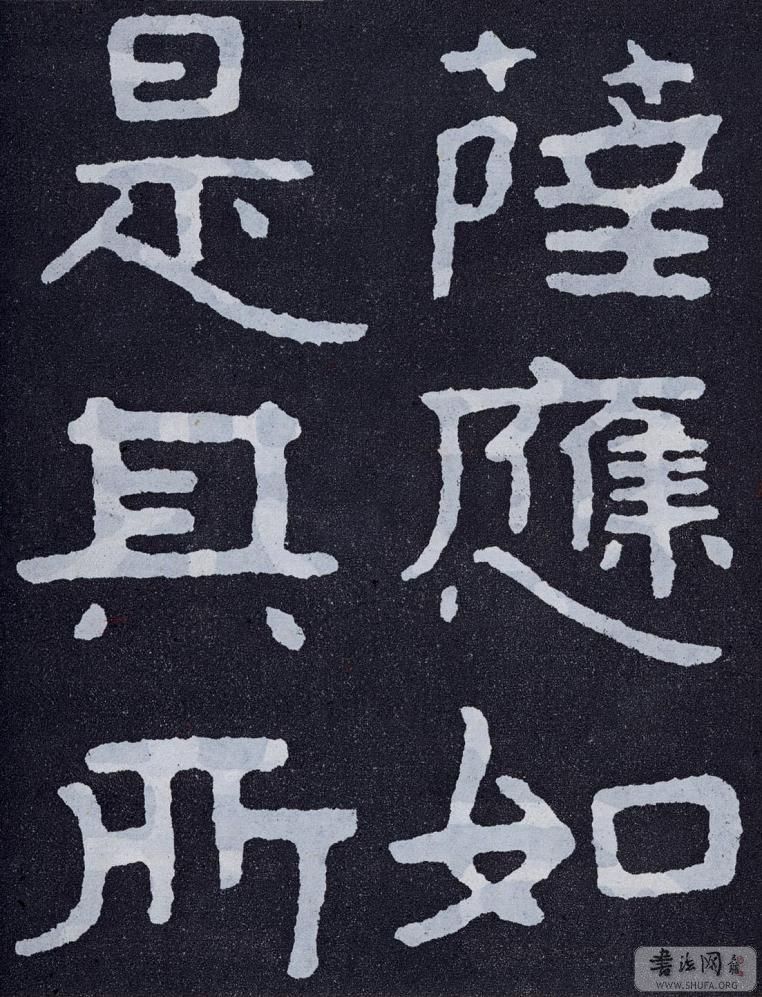 薩應如
是其所
書法网
WWW.SHUFA.ORG